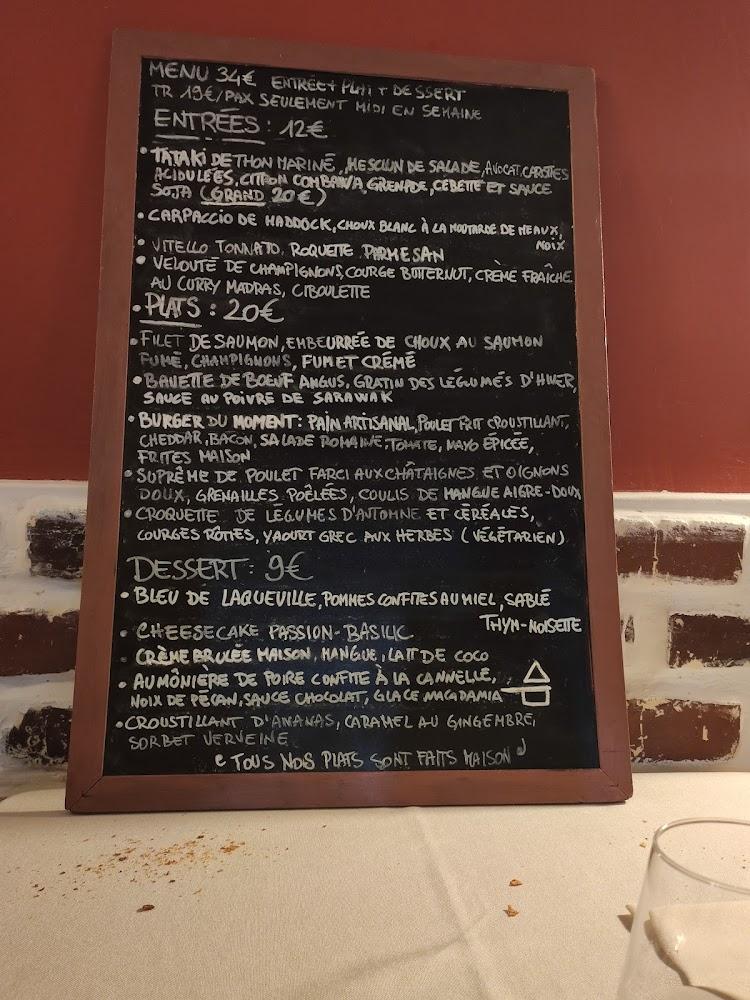 MENU 34€ ENTRÉE + PLAT + DESSERT
TR 19€/PAX SEULEMENT MIDI EN SEMAINE
ENTRÉES : 12€
• TATAKI DE THON MARINÉ, MESCLUN DE SALADE, AVOCAT, CAROTTES
ACIDULÉES, CITRON COMBAWA, GRENADE, CÉBETTE ET SAUCE
SOJA (GRAND 20€)
• CARPACCIO DE HADDOCK, CHOUX BLANC À LA MOUTARDE DE MEAUX,
NOIX
• VITELLO TONNATO, ROQUETTE PARMESAN
• VELOUTÉ DE CHAMPIGNONS, COURGE BUTTERNUT, CRÈME FRAÎCHE
AU CURRY MADRAS, CIBOULETTE
• PLATS : 20€
• FILET DE SAUMON, EMBEURRÉE DE CHOUX AU SAUMON
FUMÉ, CHAMPIGNONS, FUMET CRÉMÉ
• BAVETTE DE BOEUF ANGUS, GRATIN DES LÉGUMÉS D'HIVER,
SAUCE AU POIVRE DE SARAWAK
• BURGER DU MOMENT : PAIN ARTISANAL, POULET FRIT CROUSTILLANT,
CHEDDAR, BACON, SALADE ROMAINE, TOMATE, MAYO ÉPICÉE,
FRITES MAISON
• SUPRÊME DE POULET FARCI AUX CHÂTAIGNES ET OIGNONS
DOUX, GRENAILLES POÊLÉES, COULIS DE MANGUE AIGRE-DOUX
• CROQUETTE DE LÉGUMES D'AUTOMNE ET CÉRÉALES,
COURGES RÔTIES, YAOURT GREC AUX HERBES (VÉGÉTARIEN)
DESSERT : 9€
• BLEU DE LAQUEVILLE, POMMES CONFITES AU MIEL, SABLÉ
THYM-NOISETTE
• CHEESECAKE PASSION-BASILIC
• CRÈME BRULÉE MAISON, MANGUE, LAIT DE COCO
• AUMÔNIÈRE DE POIRE CONFITE À LA CANNELLE,
NOIX DE PÉCAN, SAUCE CHOCOLAT, GLACE MACADAMIA
• CROUSTILLANT D'ANANAS, CARAMEL AU GINGEMBRE,
SORBET VERVEINE
TOUS NOS PLATS SONT FAITS MAISON